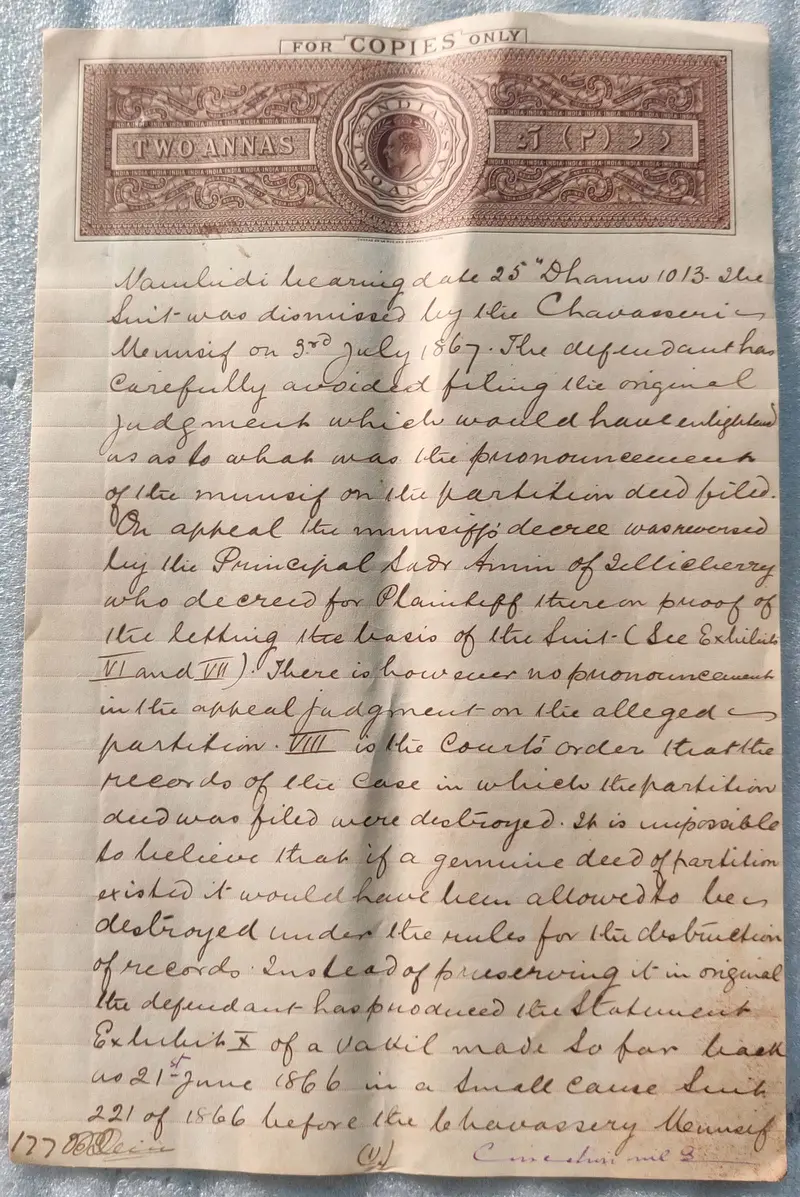 FOR COPIES ONLY
INDIA
TWO ANNAS
TWO ANNAS
دو (۲) آنہ
Nambidi bearing date 25th Dhanu 1013. The
Suit was dismissed by the Chavasseri
Munsif on 3rd July 1867. The defendant has
carefully avoided filing the original
judgment which would have enlightened
us as to what was the pronouncement
of the munsif on the partition deed filed.
On appeal the munsiff's decree was reversed
by the Principal Sadr Amin of Tellicherry
who decreed for Plaintiff there on proof of
the letting the basis of the Suit (See Exhibits
VI and VII). There is however no pronouncement
in the appeal judgment on the alleged
partition. VIII is the Court's order that the
records of the case in which the partition
deed was filed were destroyed. It is impossible
to believe that if a genuine deed of partition
existed it would have been allowed to be
destroyed under the rules for the destruction
of records. Instead of preserving it in original
the defendant has produced the Statement
Exhibit X of a Vakil made so far back
as 21st June 1866 in a Small Cause Suit
221 of 1866 before the Chavassery Munsif
177